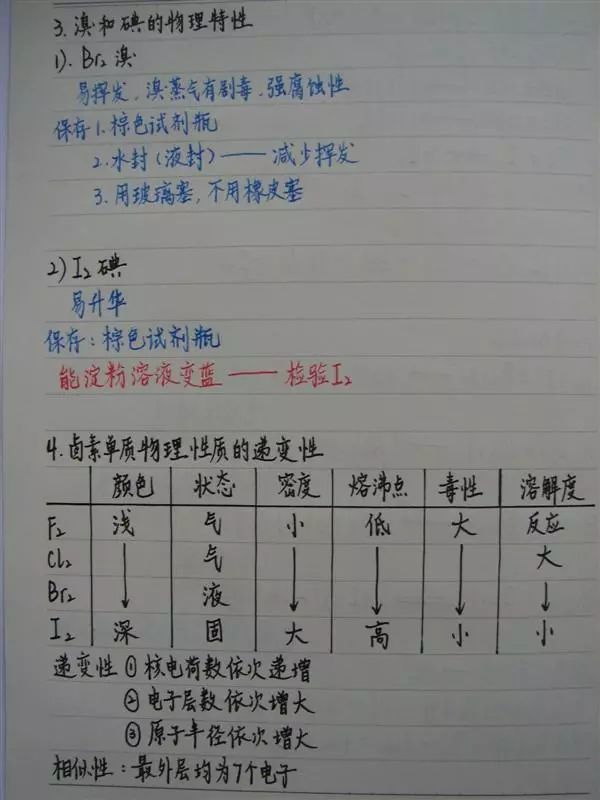 3. 溴和碘的物理特性
1). Br₂ 溴
易挥发, 溴蒸气有剧毒, 强腐蚀性
保存 1. 棕色试剂瓶
2. 水封 (液封) —— 减少挥发
3. 用玻璃塞, 不用橡皮塞
2) I₂ 碘
易升华
保存: 棕色试剂瓶
能淀粉溶液变蓝 —— 检验 I₂
4. 卤素单质物理性质的递变性
颜色 状态 密度 熔沸点 毒性 溶解度
F₂ 浅 气 小 低 大 反应
Cl₂ 气 大
Br₂ 液
I₂ 深 固 大 高 小 小
递变性 ① 核电荷数依次递增
② 电子层数依次增大
③ 原子半径依次增大
相似性: 最外层均为7个电子